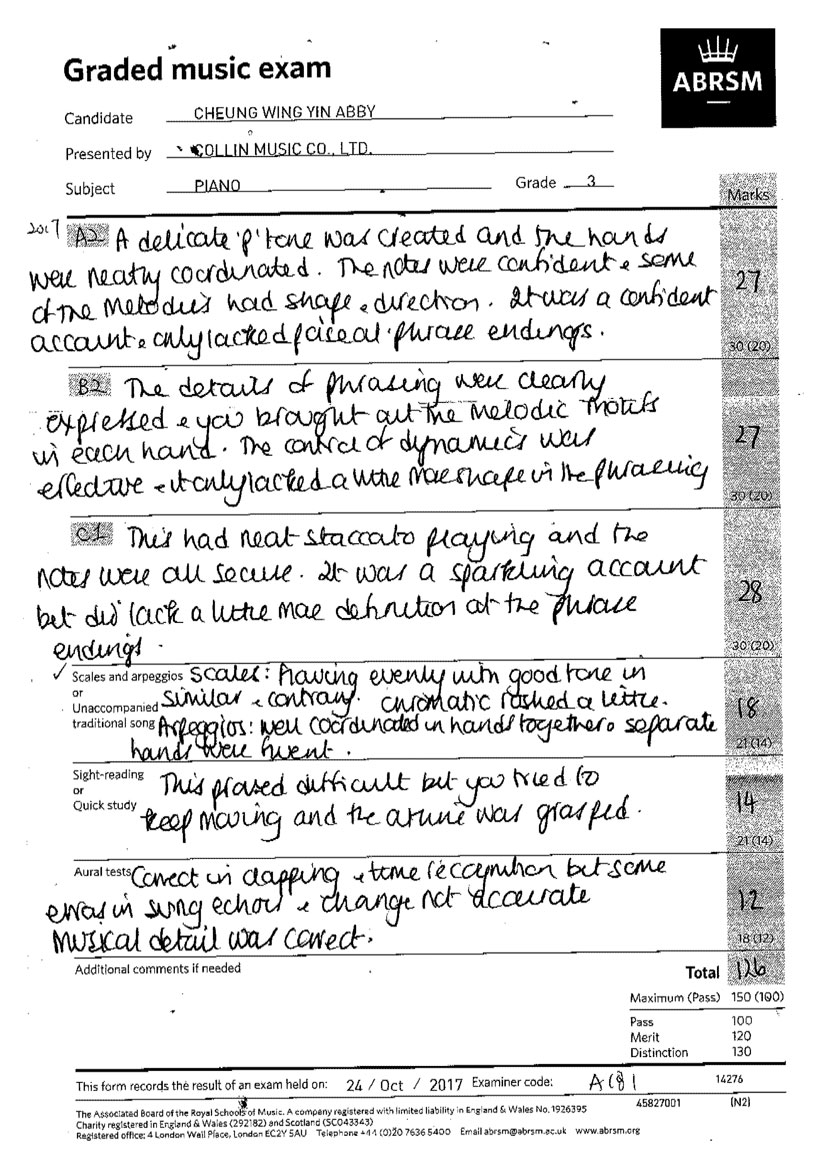 Graded music exam
ABRSM
Candidate CHEUNG WING YIN ABBY
Presented by COLLIN MUSIC CO., LTD.
Subject PIANO Grade 3
Marks
2017 A2 A delicate 'p' tone was created and the hands
were neatly coordinated. The notes were confident & some
of the melodies had shape & direction. It was a confident 27
account & only lacked poise at phrase endings.
30 (20)
B2 The details of phrasing were clearly
expressed & you brought out the melodic motifs
in each hand. The control of dynamics was 27
effective & it only lacked a little more shape in the phrasing
30 (20)
C1 This had neat staccato playing and the
notes were all secure. It was a sparkling account
but did lack a little more definition at the phrase 28
endings. 30 (20)
✓ Scales and arpeggios Scales: Playing evenly with good tone in
or
Unaccompanied similar & contrary. chromatic rushed a little. 18
traditional song Arpeggios: well coordinated in hands together & separate
hands were fluent. 21 (14)
Sight-reading This proved difficult but you tried to
or
Quick study keep moving and the was grasped. 14
21 (14)
Aural tests Correct in clapping & time recognition but some
errors in sung echoes & change not accurate 12
musical detail was correct. 18 (12)
Additional comments if needed Total 126
Maximum (Pass) 150 (100)
Pass 100
Merit 120
Distinction 130
This form records the result of an exam held on: 24 / Oct / 2017 Examiner code: 14276
45827001 (N2)
The Associated Board of the Royal Schools of Music. A company registered with limited liability in England & Wales No. 1926395
Charity registered in England & Wales (292182) and Scotland (SC043343)
Registered office: 4 London Wall Place, London EC2Y 5AU Telephone +44 (0)20 7636 5400 Email abrsm@abrsm.ac.uk www.abrsm.org